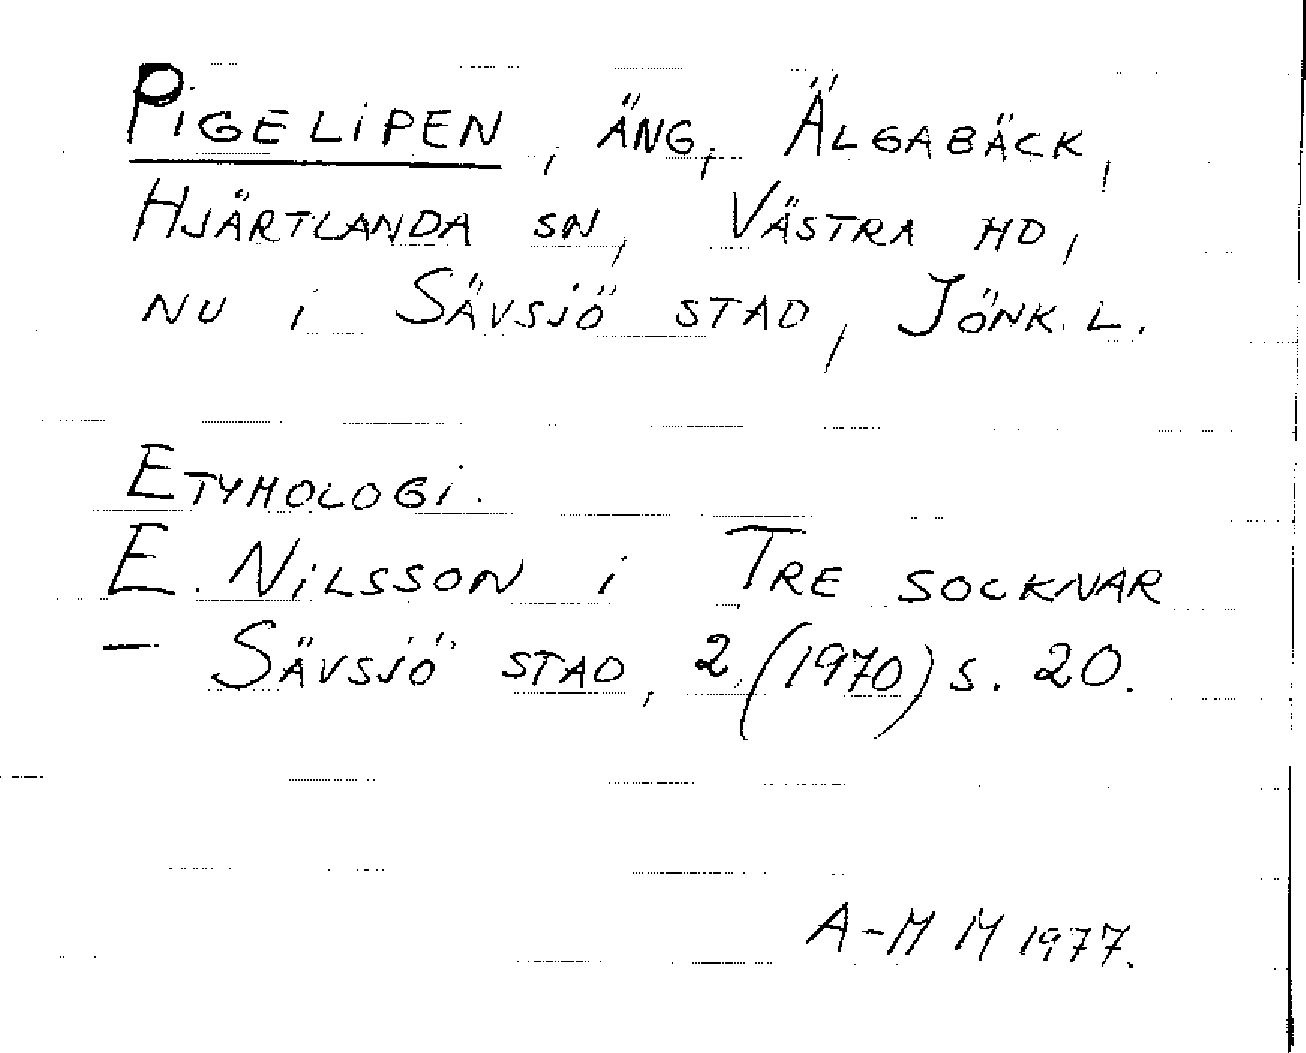 PIGELIPEN, ÄNG, ÄLGABÄCK,
HJÄRTLANDA SN, VÄSTRA HD,
NU I SÄVSJÖ STAD, JÖNK. L.
ETYMOLOGI.
E. NILSSON I TRE SOCKNAR
– SÄVSJÖ STAD, 2 (1970) S. 20.
A-M M 1977.